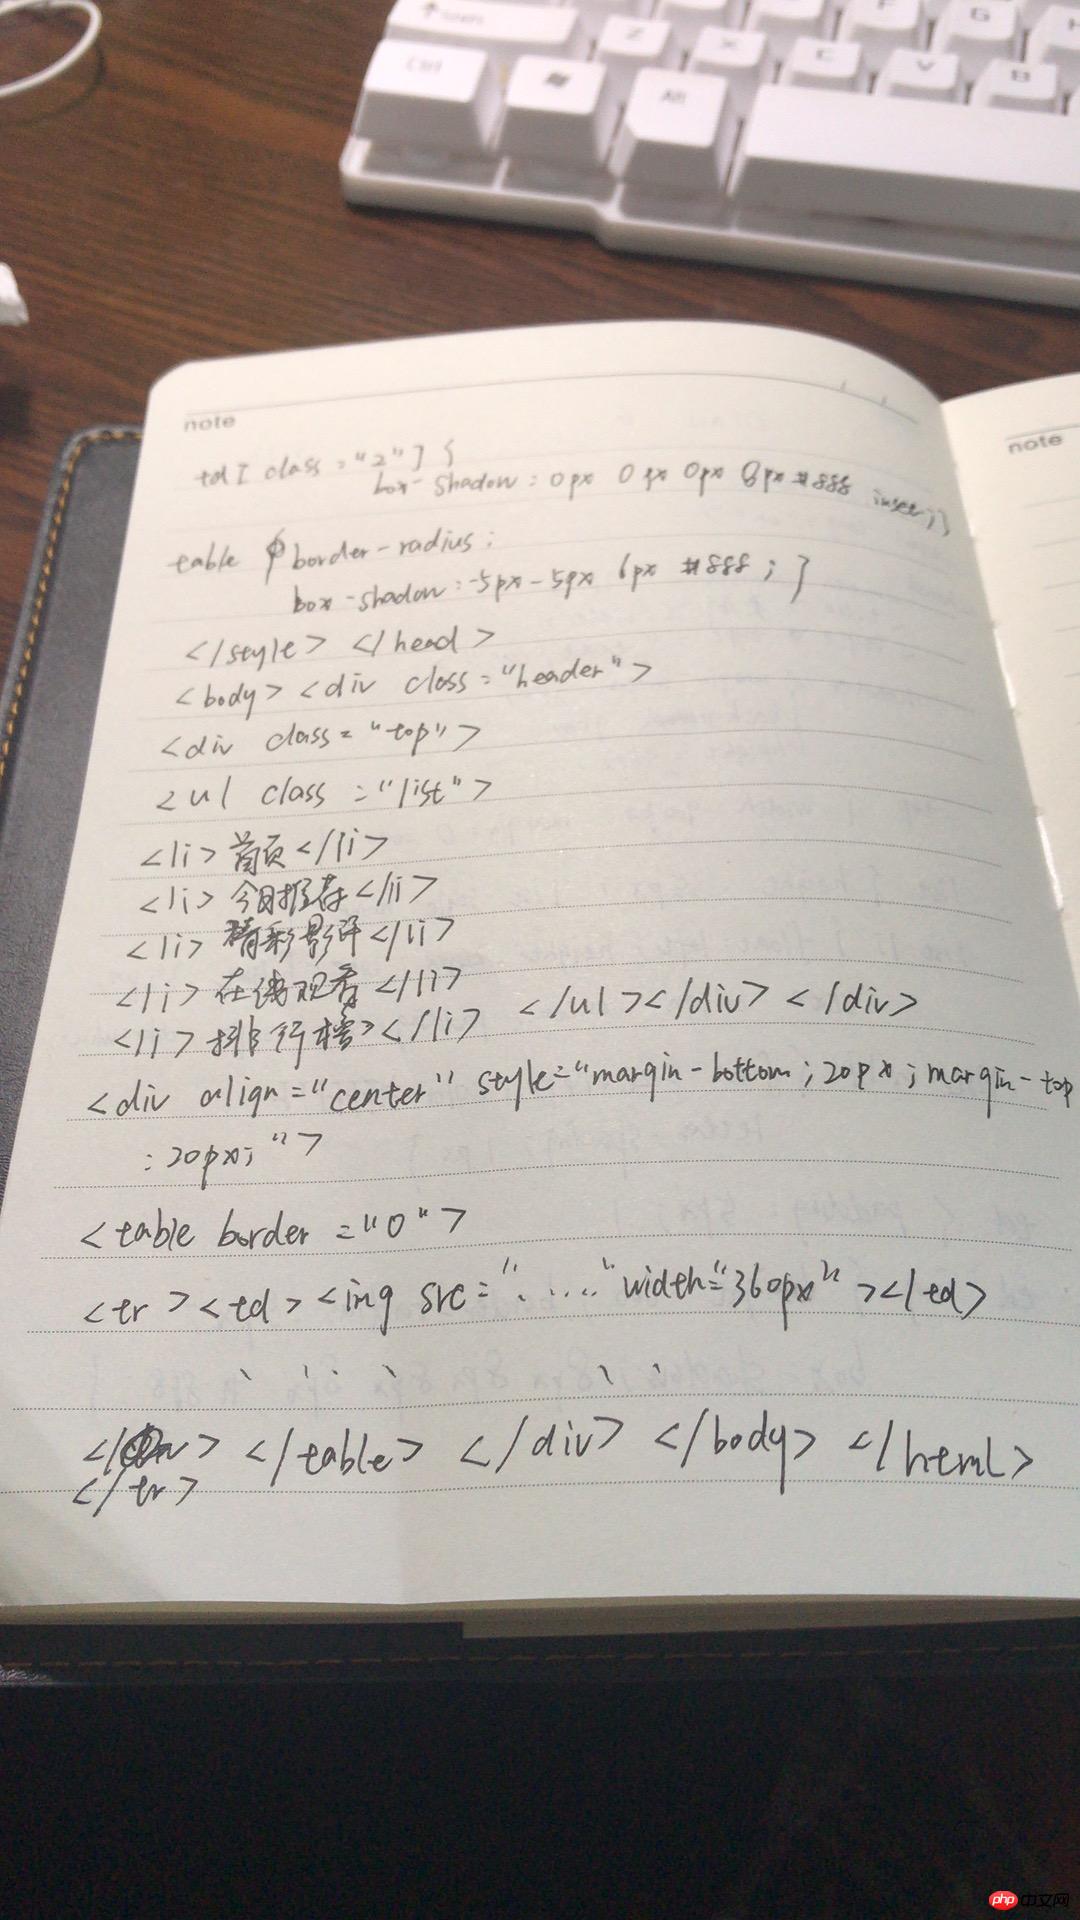 Ctrl
Alt
Z
X
C
V
B
F
G
H
note
note
td [ class = "2" ] {
box-shadow : 0px 0px 0px 8px #888 inset;}
table { border-radius :
box-shadow : -5px -5px 6px #888 ; }
</style> </head>
<body> <div class = "header">
<div class = "top">
<ul class = "list">
<li> 首页 </li>
<li> 今日推荐 </li>
<li> 精彩影评 </li>
<li> 在线观看 </li>
<li> 排行榜 </li> </ul></div> </div>
<div align = "center" style="margin-bottom ; 20px ; margin-top
: 20px; ">
<table border = "0">
<tr > <td> <ing src = " ....." width="360px" ></td>
</table> </div> </body> </html>
</tr>
php 中文网